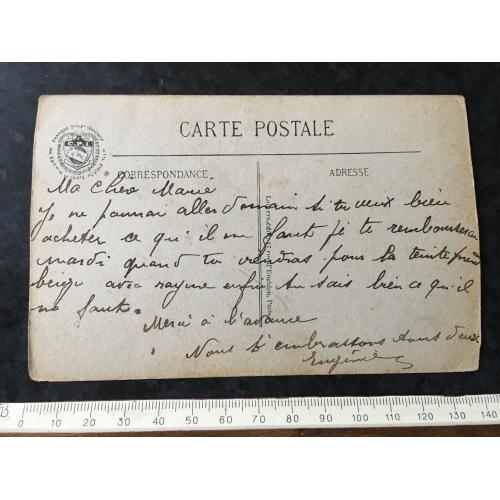 CARTE POSTALE
CORRESPONDANCE
ADRESSE
Ma chère Marie
Je ne pourrai aller demain si tu veux bien
acheter ce qu'il me faut je te rembourserai
mardi quand tu viendras pour la teinte
beige avec rayure enfin tu sais bien ce qu'il
me faut
Merci à l'avance
Nous t'embrassons tous deux
Eugénie
B 0 10 20 30 40 50 60 70 80 90 100 110 120 130 140